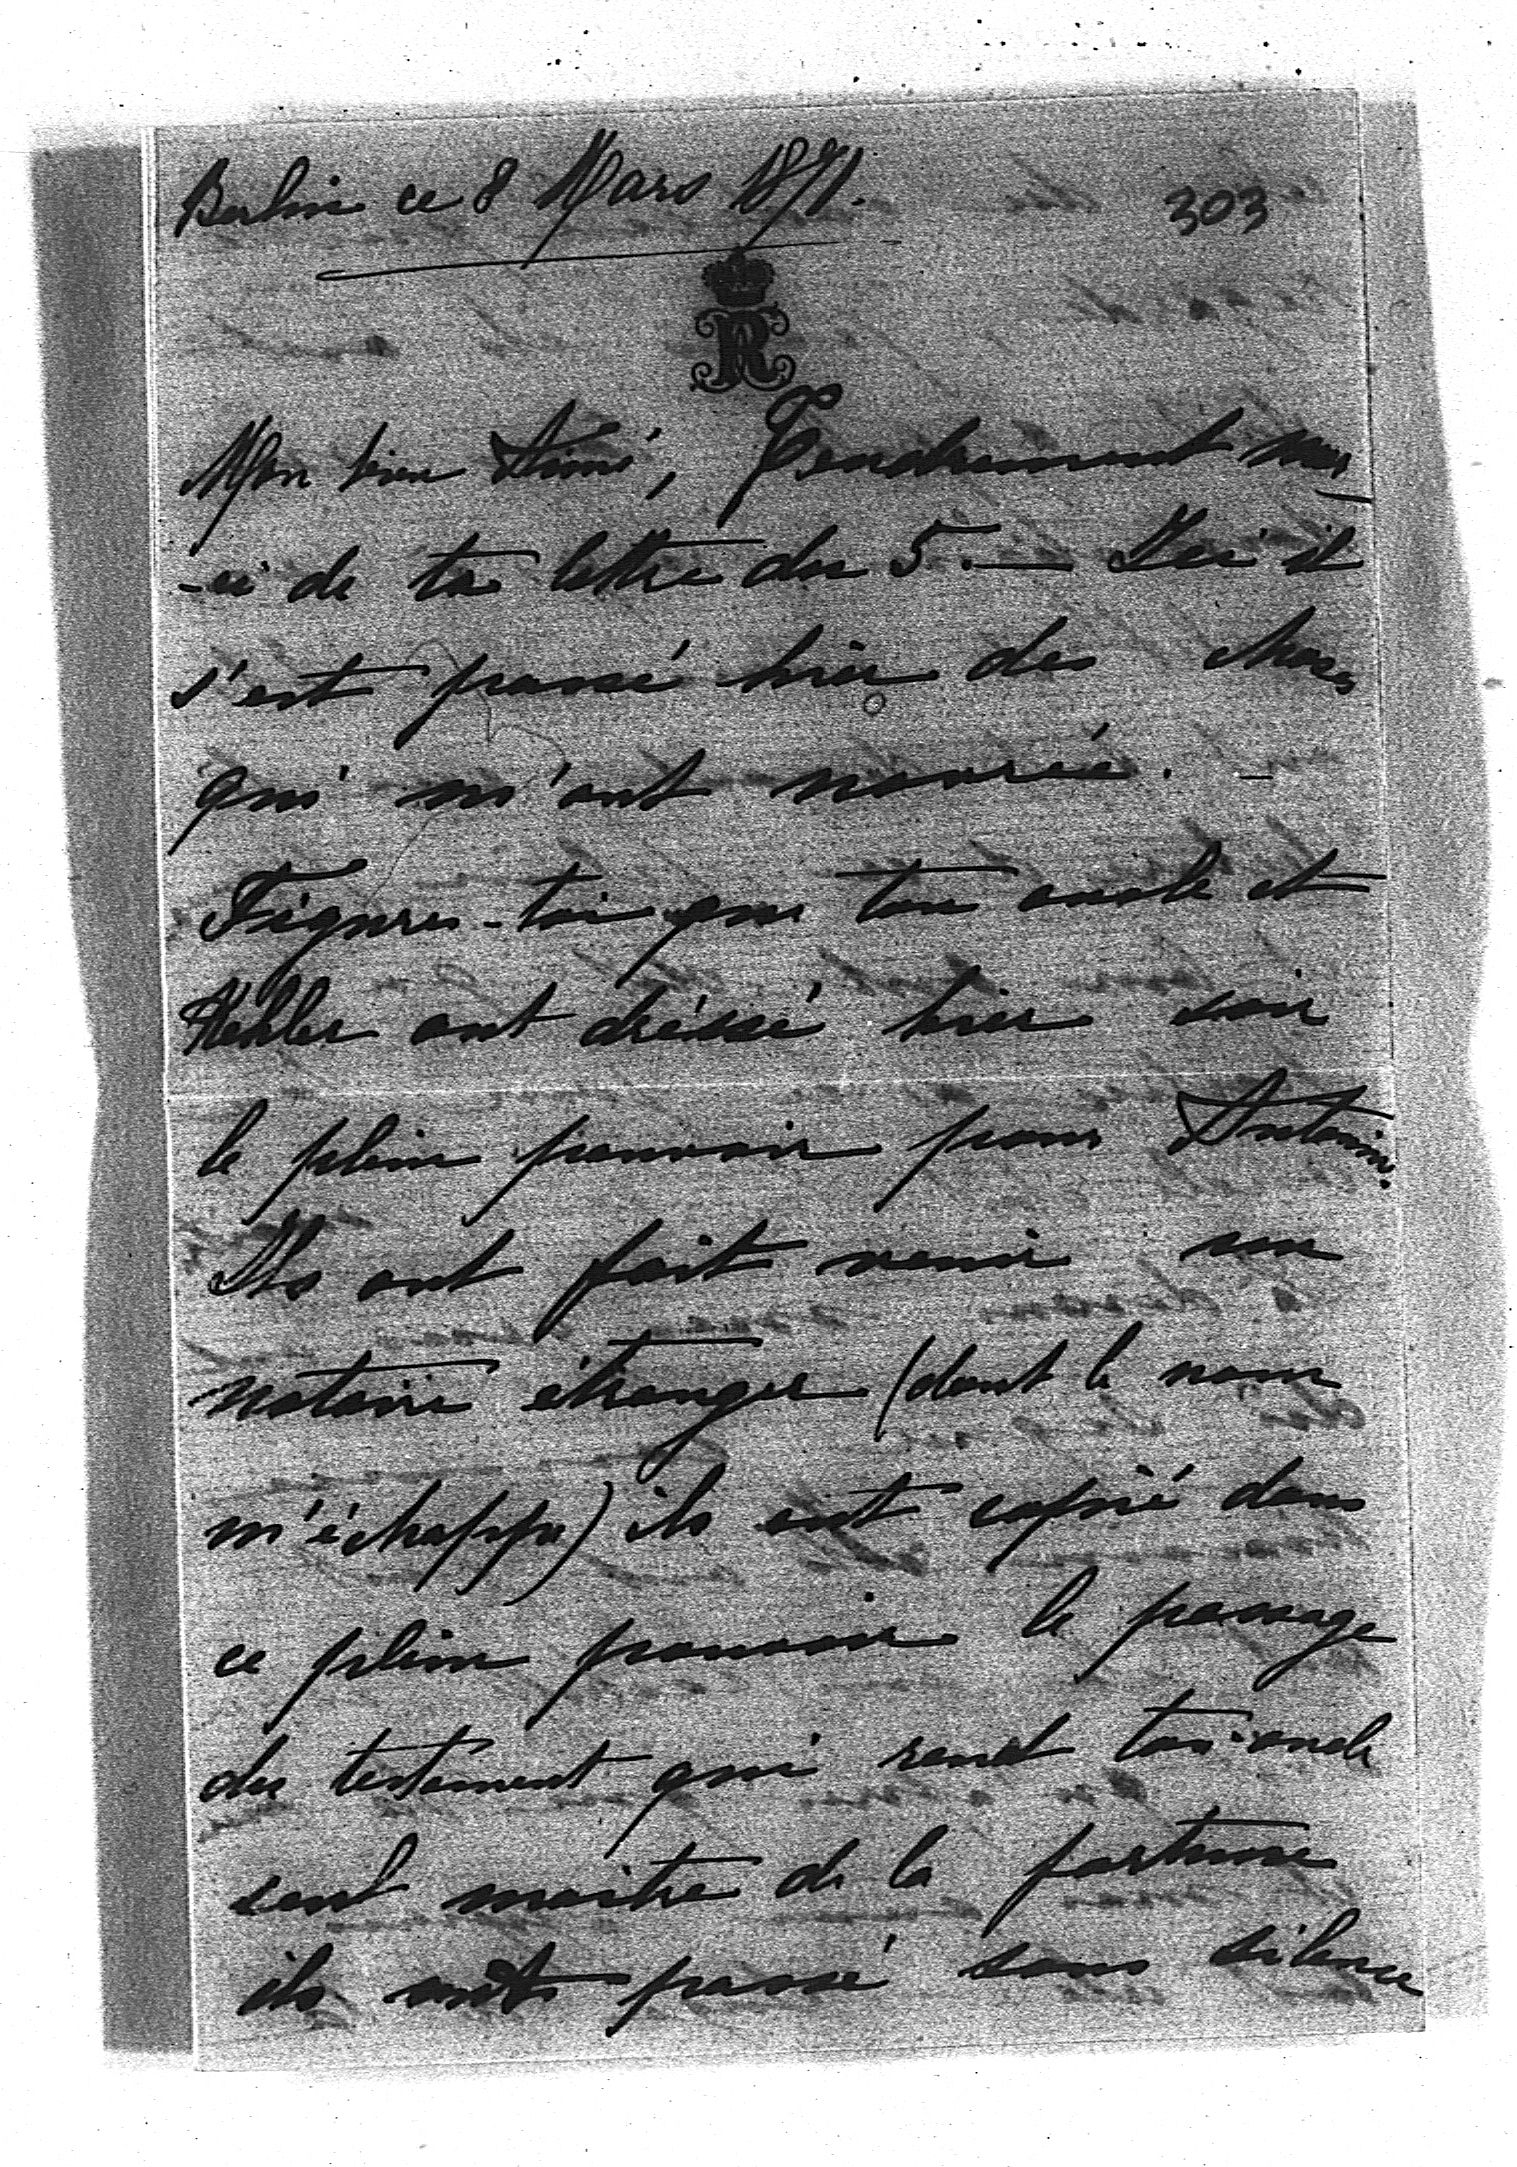 Berlin ce 8 Mars 1891.
303
R
Mon bien Aimé, Tendrement mer
-ci de ta lettre du 5. — Ici il
s'est passé hier des choses
qui m'ont navrée. —
Figures-toi que ton oncle et
Kehler ont dréssé hier soir
le plein pouvoir pour Antoine.
Ils ont fait venir un
notaire étranger (dont le nom
m'échappe) ils ont copié dans
ce plein pouvoir le passage
du testament qui rend ton oncle
seul maitre de la fortune
ils ont passé sous silence